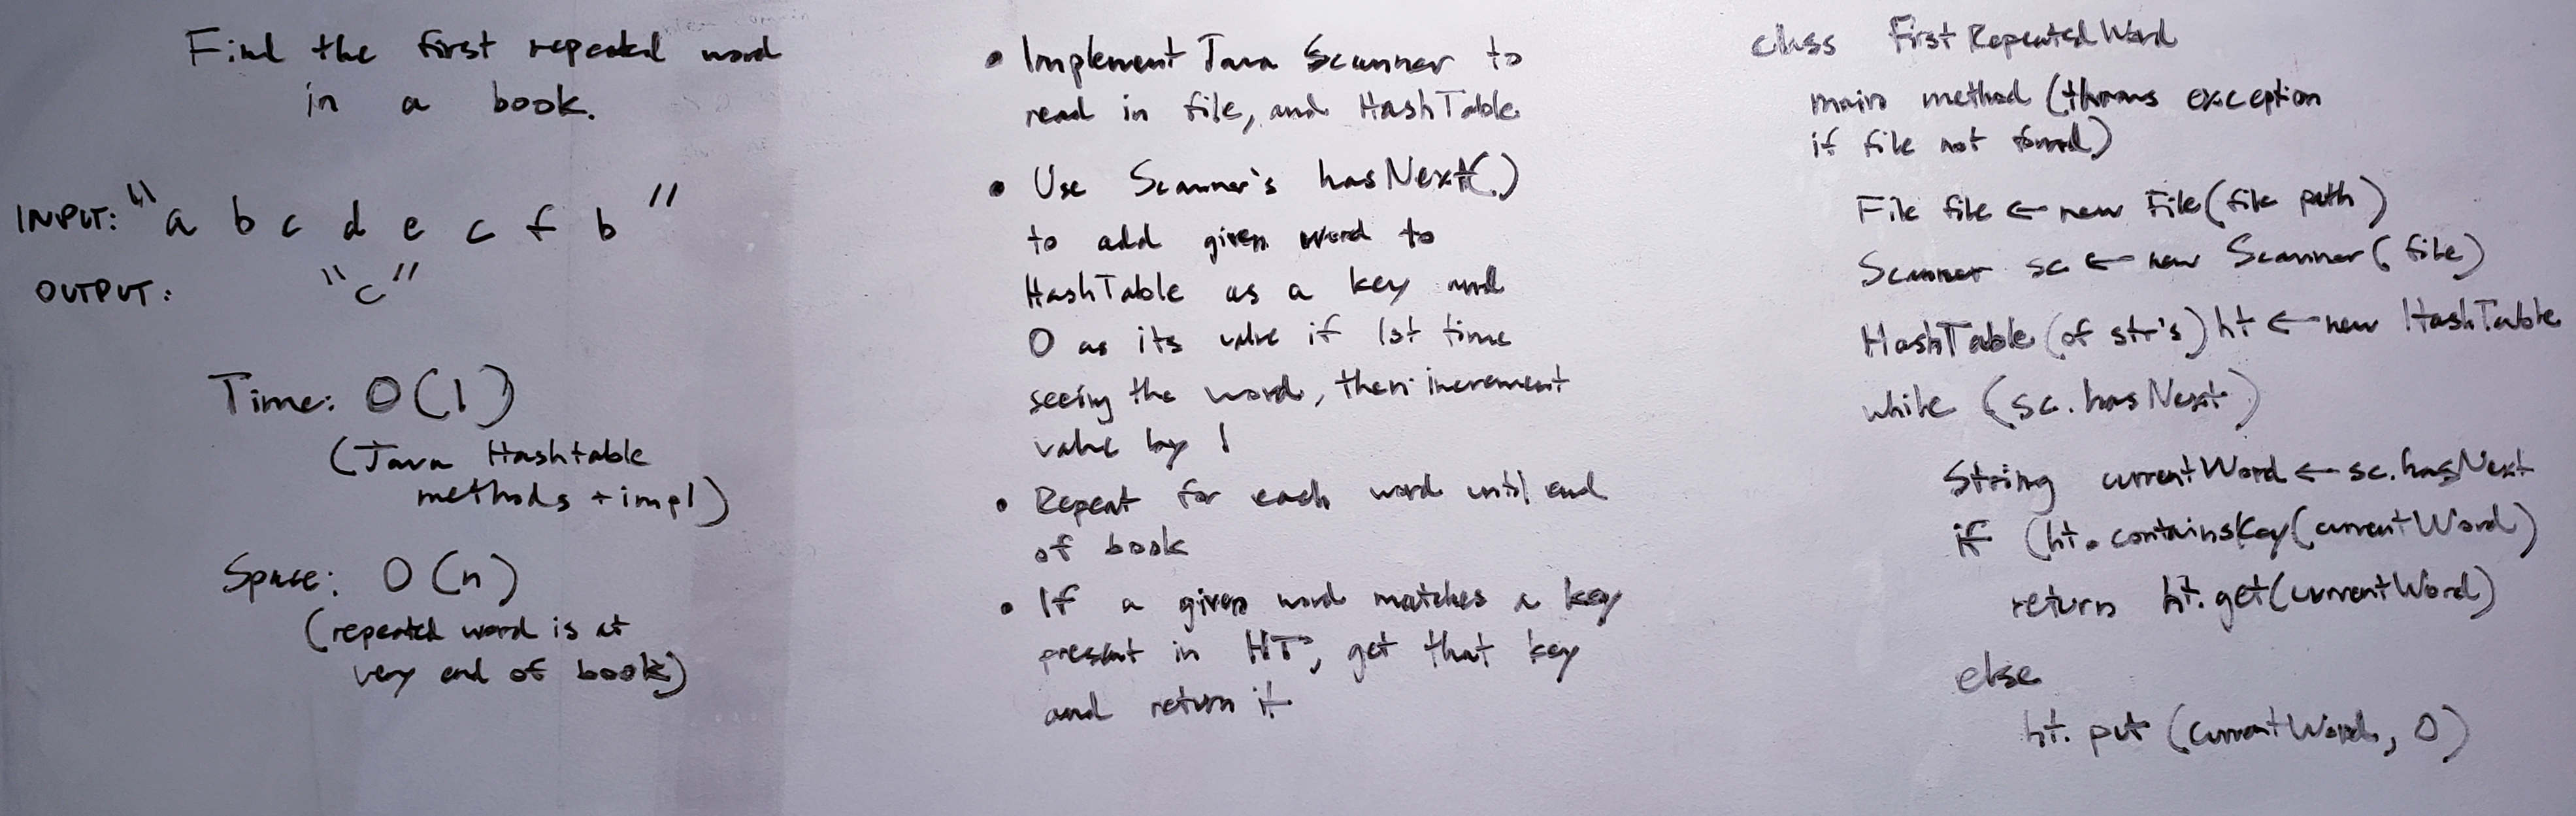 Find the first repeated word
in a book.
INPUT: "a b c d e c f b"
OUTPUT: "c"
Time: O(1)
(Java Hashtable
methods + impl)
Space: O(n)
(repeated word is at
very end of book)
• Implement Java Scanner to
read in file, and HashTable
• Use Scanner's hasNext()
to add given word to
HashTable as a key and
0 as its value if 1st time
seeing the word, then increment
value by 1
• Repeat for each word until end
of book
• If a given word matches a key
present in HT, get that key
and return it
class FirstRepeatedWord
main method (throws exception
if file not found)
File file ← new File(file path)
Scanner sc ← new Scanner(file)
HashTable (of str's) ht ← new HashTable
while (sc.hasNext)
String currentWord ← sc.hasNext
if (ht.containsKey(currentWord)
return ht.get(currentWord)
else
ht.put(currentWord, 0)